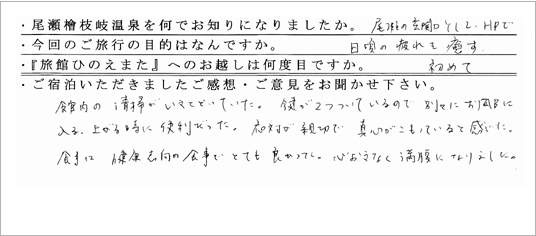 ・尾瀬檜枝岐温泉を何でお知りになりましたか。 尾瀬の玄関口として、HPで
・今回のご旅行の目的はなんですか。 日頃の疲れを癒す
・『旅館ひのえまた』へのお越しは何度目ですか。 初めて
・ご宿泊いただきましたご感想・ご意見をお聞かせ下さい。
館内の清掃がいきとどいていた。鍵が2つついているので別々にお風呂に
入る、上がる時に便利だった。応対が親切で真心がこもっていると感じた。
食事は健康志向の食事でとても良かった。心おきなく満腹になりました。